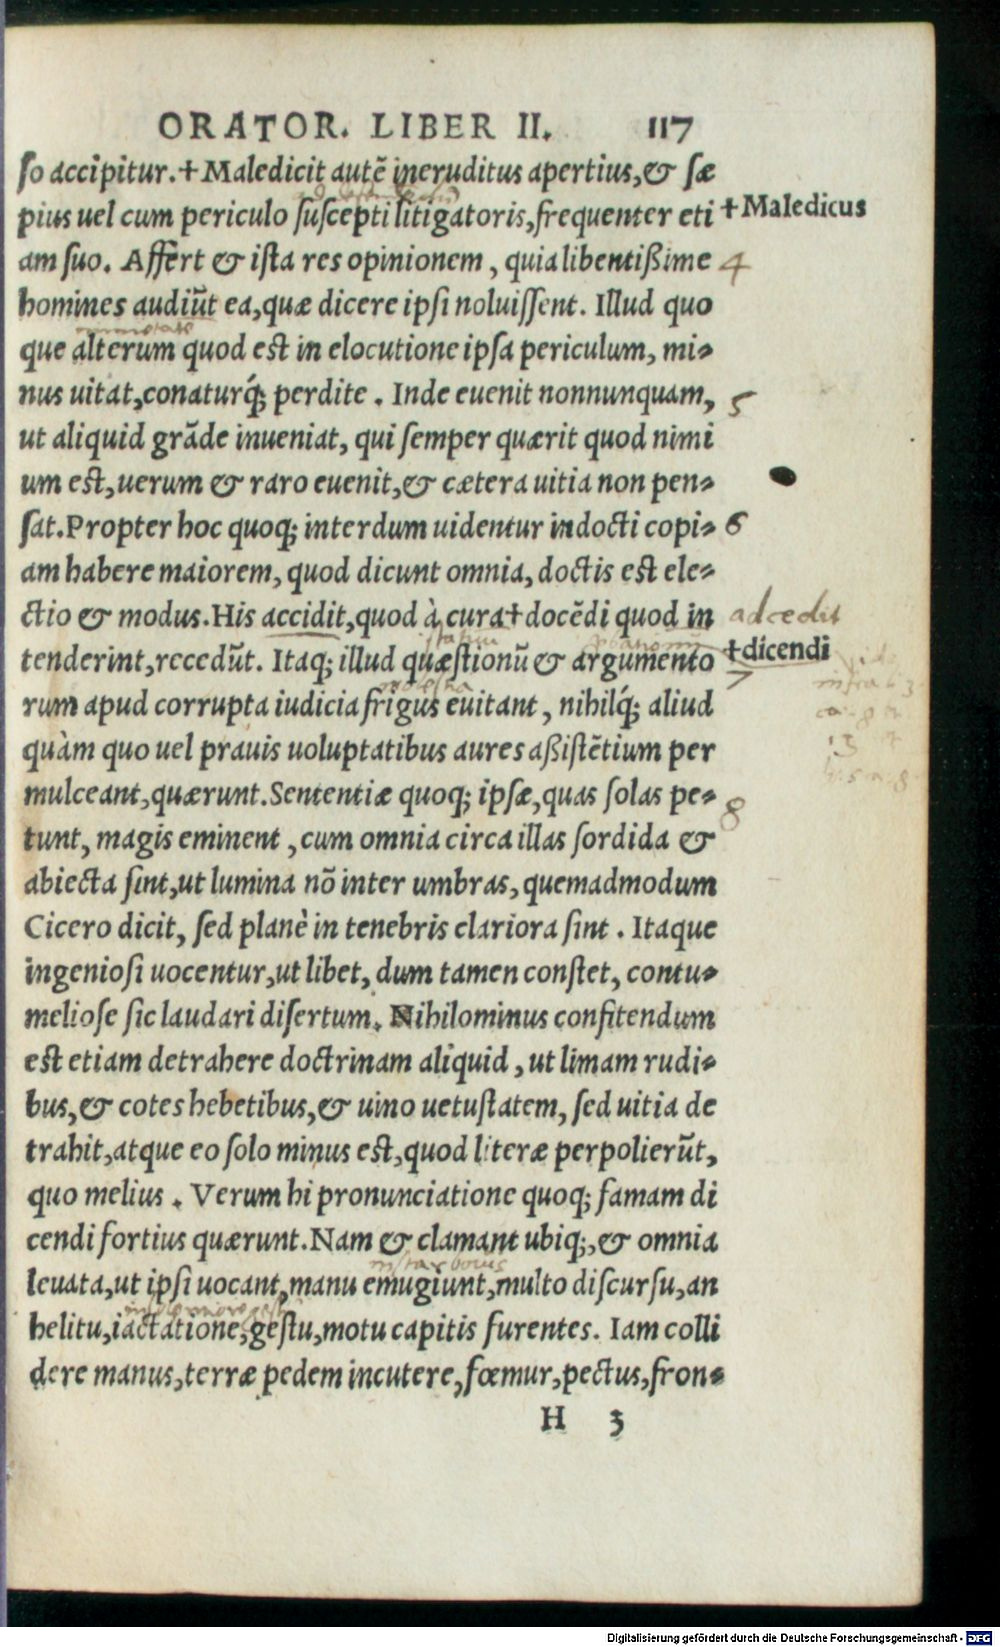 ORATOR. LIBER II. 117
so accipitur.+Maledicit autē ineruditus apertius,& sæ
pius uel cum periculo suscepti litigatoris,frequenter eti
+Maledicus
am suo. Affert & ista res opinionem, quia libentißime
4
homines audiūt ea,quæ dicere ipsi noluissent. Illud quo
que alterum quod est in elocutione ipsa periculum, mi-
nus uitat,conaturq́; perdite. Inde euenit nonnunquam,
5
ut aliquid grāde inueniat, qui semper quærit quod nimi
um est,uerum & raro euenit,& cætera uitia non pen-
sat.Propter hoc quoq; interdum uidentur indocti copi-
6
am habere maiorem, quod dicunt omnia, doctis est ele-
ctio & modus.His accidit,quod à cura+docēdi quod in
adcedit
tenderint,recedūt. Itaq; illud quæstionū & argumento
+dicendi
7
rum apud corrupta iudicia frigus euitant, nihilq́; aliud
quàm quo uel prauis uoluptatibus aures aßistētium per
mulceant,quærunt.Sententiæ quoq; ipsæ,quas solas pe-
8
tunt, magis eminent, cum omnia circa illas sordida &
abiecta sint,ut lumina nō inter umbras, quemadmodum
Cicero dicit, sed planè in tenebris clariora sint. Itaque
ingeniosi uocentur,ut libet, dum tamen constet, contu-
meliose sic laudari disertum. Nihilominus confitendum
est etiam detrahere doctrinam aliquid, ut limam rudi-
bus,& cotes hebetibus,& uino uetustatem, sed uitia de
trahit,atque eo solo minus est,quod literæ perpolierūt,
quo melius. Verum hi pronunciatione quoq; famam di
cendi fortius quærunt.Nam & clamant ubiq;,& omnia
instar bouis
leuata,ut ipsi uocant,manu emugiunt,multo discursu,an
helitu,iactatione,gestu,motu capitis furentes. Iam colli
dere manus,terræ pedem incutere,fœmur,pectus,fron-
H 3
Digitalisierung gefördert durch die Deutsche Forschungsgemeinschaft - DFG